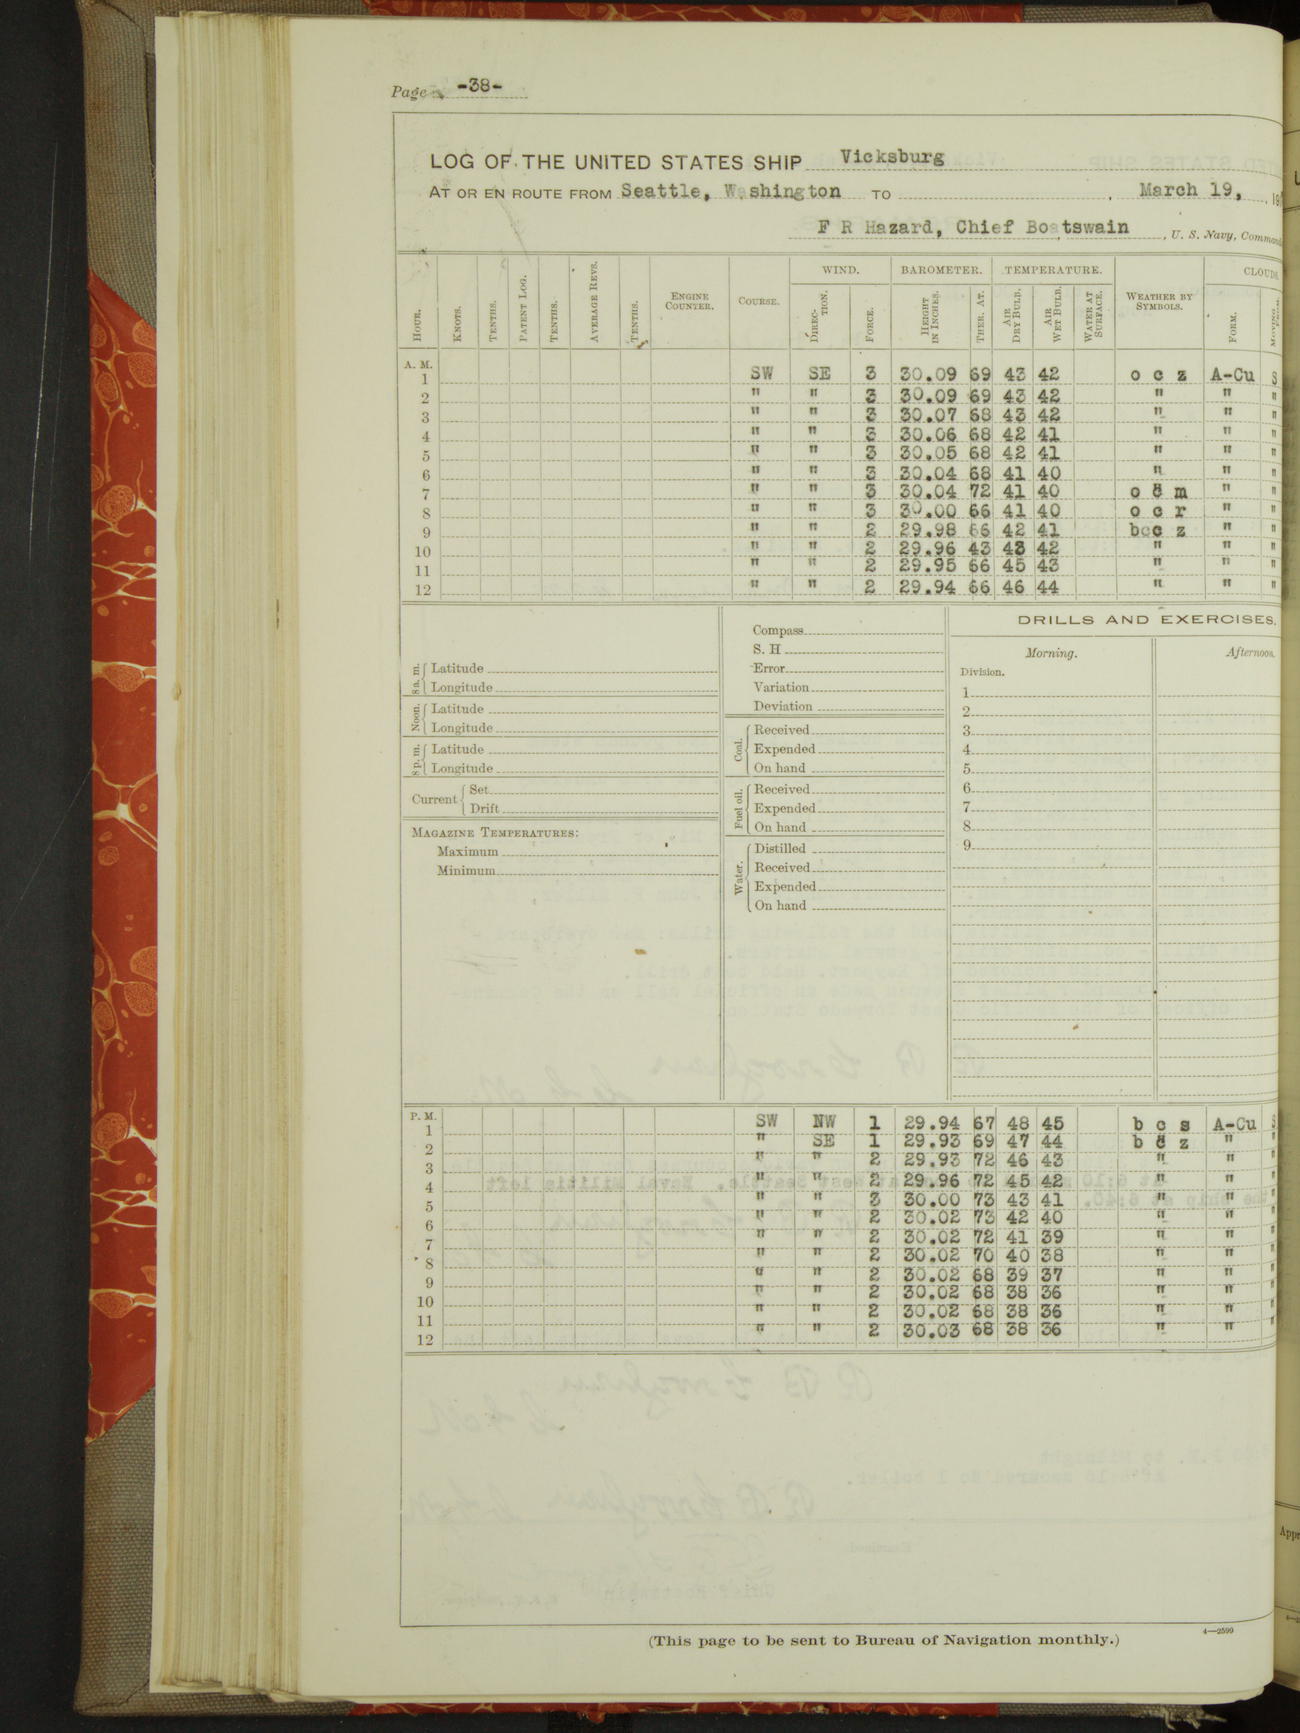 Page -38-
LOG OF THE UNITED STATES SHIP Vicksburg
AT OR EN ROUTE FROM Seattle, Washington TO , March 19, , 19
F R Hazard, Chief Boatswain , U. S. Navy, Command
HOUR. KNOTS. TENTHS. PATENT LOG. TENTHS. AVERAGE REVS. TENTHS. ENGINE COUNTER. COURSE. WIND. BAROMETER. TEMPERATURE. WEATHER BY SYMBOLS. CLOUDS
DIRECTION. FORCE. HEIGHT IN INCHES. THER. AT. AIR DRY BULB. AIR WET BULB. WATER AT SURFACE. FORM. MOVING
A. M.
1 SW SE 3 30.09 69 43 42 o c z A-Cu S
2 " " 3 30.09 69 43 42 " " "
3 " " 3 30.07 68 43 42 " " "
4 " " 3 30.06 68 42 41 " " "
5 " " 3 30.05 68 42 41 " " "
6 " " 3 30.04 68 41 40 " " "
7 " " 3 30.04 72 41 40 o c m " "
8 " " 3 30.00 66 41 40 o c r " "
9 " " 2 29.98 66 42 41 b c z " "
10 " " 2 29.96 43 43 42 " " "
11 " " 2 29.95 66 45 43 " " "
12 " " 2 29.94 66 46 44 " " "
8 a. m. Latitude
Longitude
Noon. Latitude
Longitude
8 p. m. Latitude
Longitude
Current Set
Drift
MAGAZINE TEMPERATURES:
Maximum
Minimum
Compass
S. H
Error
Variation
Deviation
Coal. Received
Expended
On hand
Fuel oil. Received
Expended
On hand
Water. Distilled
Received
Expended
On hand
DRILLS AND EXERCISES.
Morning. Afternoon.
Division.
1
2
3
4
5
6
7
8
9
P. M.
1 SW NW 1 29.94 67 48 45 b c s A-Cu S
2 " SE 1 29.93 69 47 44 b c z " "
3 " " 2 29.93 72 46 43 " " "
4 " " 2 29.96 72 45 42 " " "
5 " " 3 30.00 73 43 41 " " "
6 " " 2 30.02 73 42 40 " " "
7 " " 2 30.02 72 41 39 " " "
8 " " 2 30.02 70 40 38 " " "
9 " " 2 30.02 68 39 37 " " "
10 " " 2 30.02 68 38 36 " " "
11 " " 2 30.02 68 38 36 " " "
12 " " 2 30.03 68 38 36 " " "
(This page to be sent to Bureau of Navigation monthly.)
4—2599